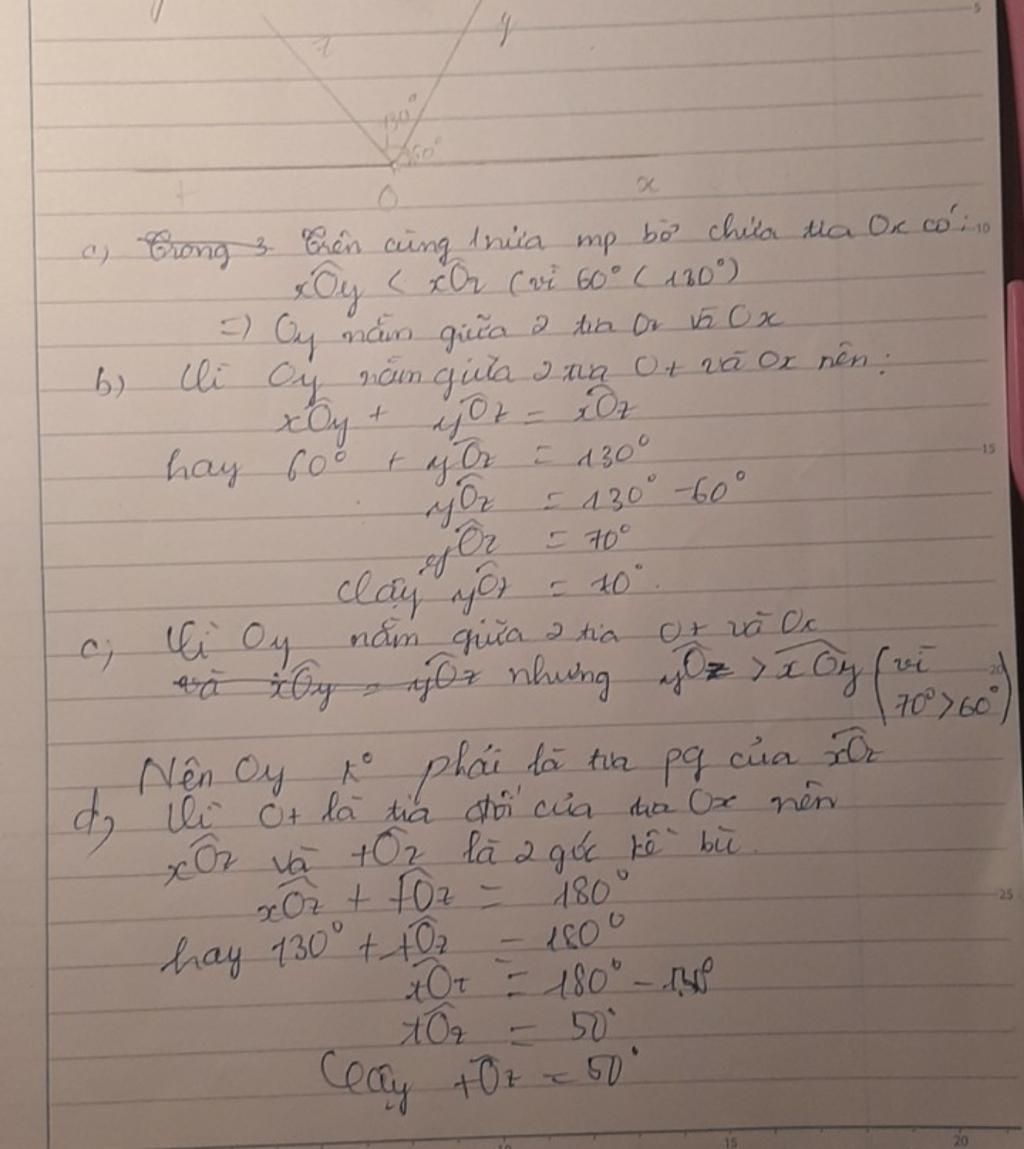 y
z
130°
60°
t
O
x
5
a) Trong 3 Trên cùng 1 nửa mp bờ chứa tia Ox có: 10
xÔy < xÔz (vì 60° < 130°)
=) Oy nằm giữa 2 tia Oz và Ox
b) Vì Oy nằm giữa 2 tia Oz và Ox nên:
xÔy + yÔz = xÔz
hay 60° + yÔz = 130° 15
yÔz = 130° - 60°
yÔz = 70°
Vậy yÔz = 70°.
c) Vì Oy nằm giữa 2 tia Oz và Ox
và xÔy = yÔz nhưng yÔz > xÔy (vì 20
70° > 60°)
Nên Oy k° phải là tia pg của xÔz
d) Vì Ot là tia đối của tia Ox nên
xÔz và tÔz là 2 góc kề bù.
xÔz + tÔz = 180° 25
hay 130° + tÔz = 180°
tÔz = 180° - 130°
tÔz = 50°
Vậy tÔz = 50°
15 20